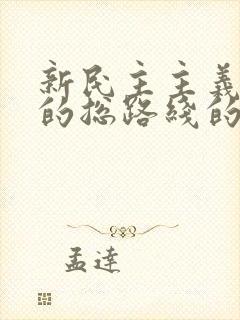 新民主主義
的总路綫的
孟達